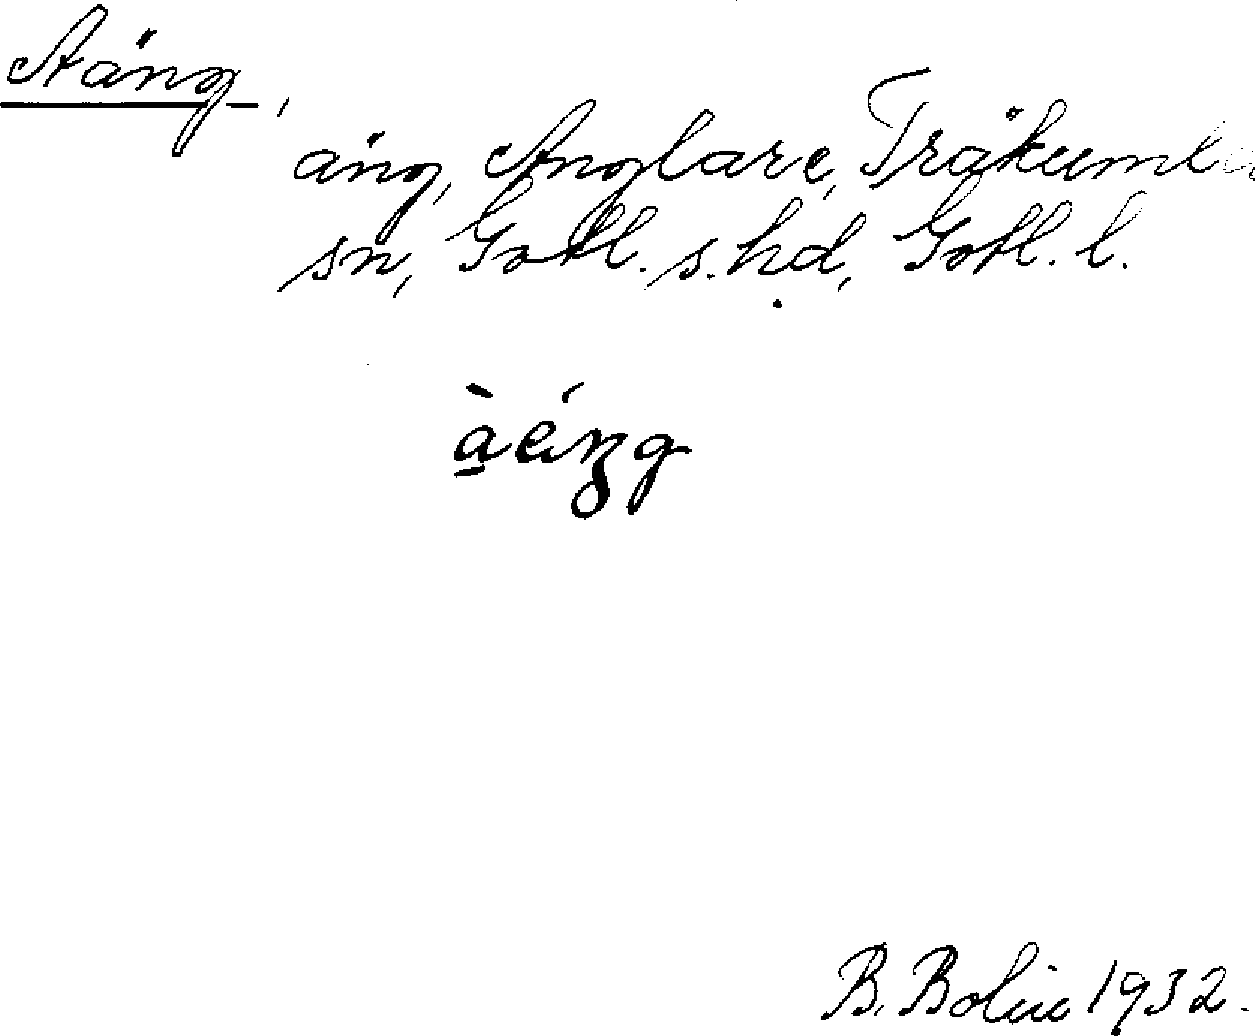 Aäng,
äng, Anglare, Träkumla
sn, Gotl. s. hd, Gotl. l.
B. Bolin 1932.